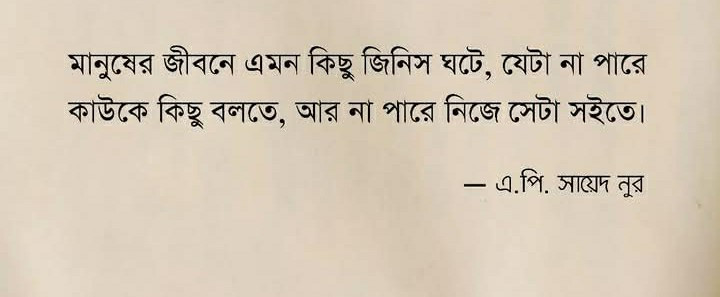 মানুষের জীবনে এমন কিছু জিনিস ঘটে, যেটা না পারে
কাউকে কিছু বলতে, আর না পারে নিজে সেটা সইতে।
— এ.পি. সায়েদ নুর